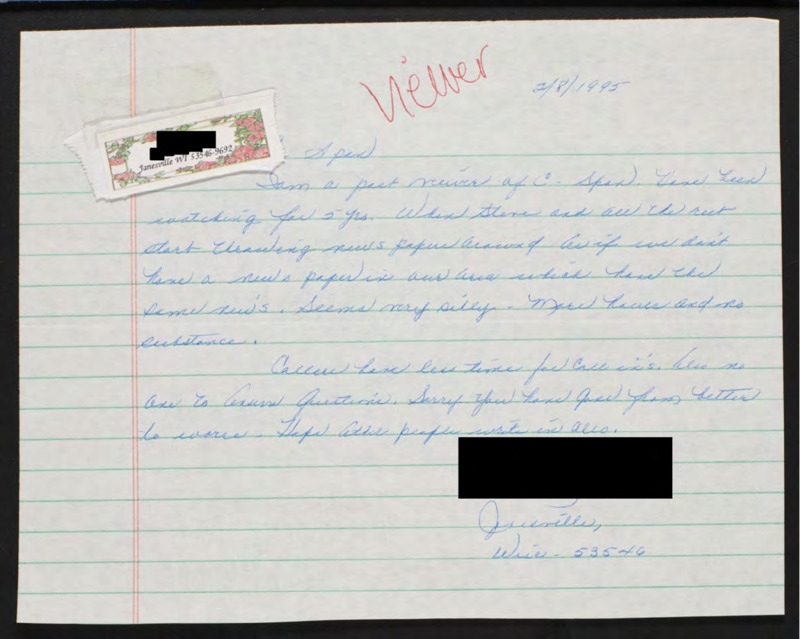 Viewer
2/8/1995
Janesville WI 53546-9692
Span
I am a past viewer of C-Span. Have been
watching for 5 yrs. When Steve and all the rest
start throwing news papers around as if we don't
have a news paper in our area which have the
same new's. Seems very silly - More hours and no
substance.
Callers have less time for Call in's. Also no
one to Answer Questions. Sorry you have gone from better
to worse - Hope other people write in also.
Janesville,
Wisc - 53546